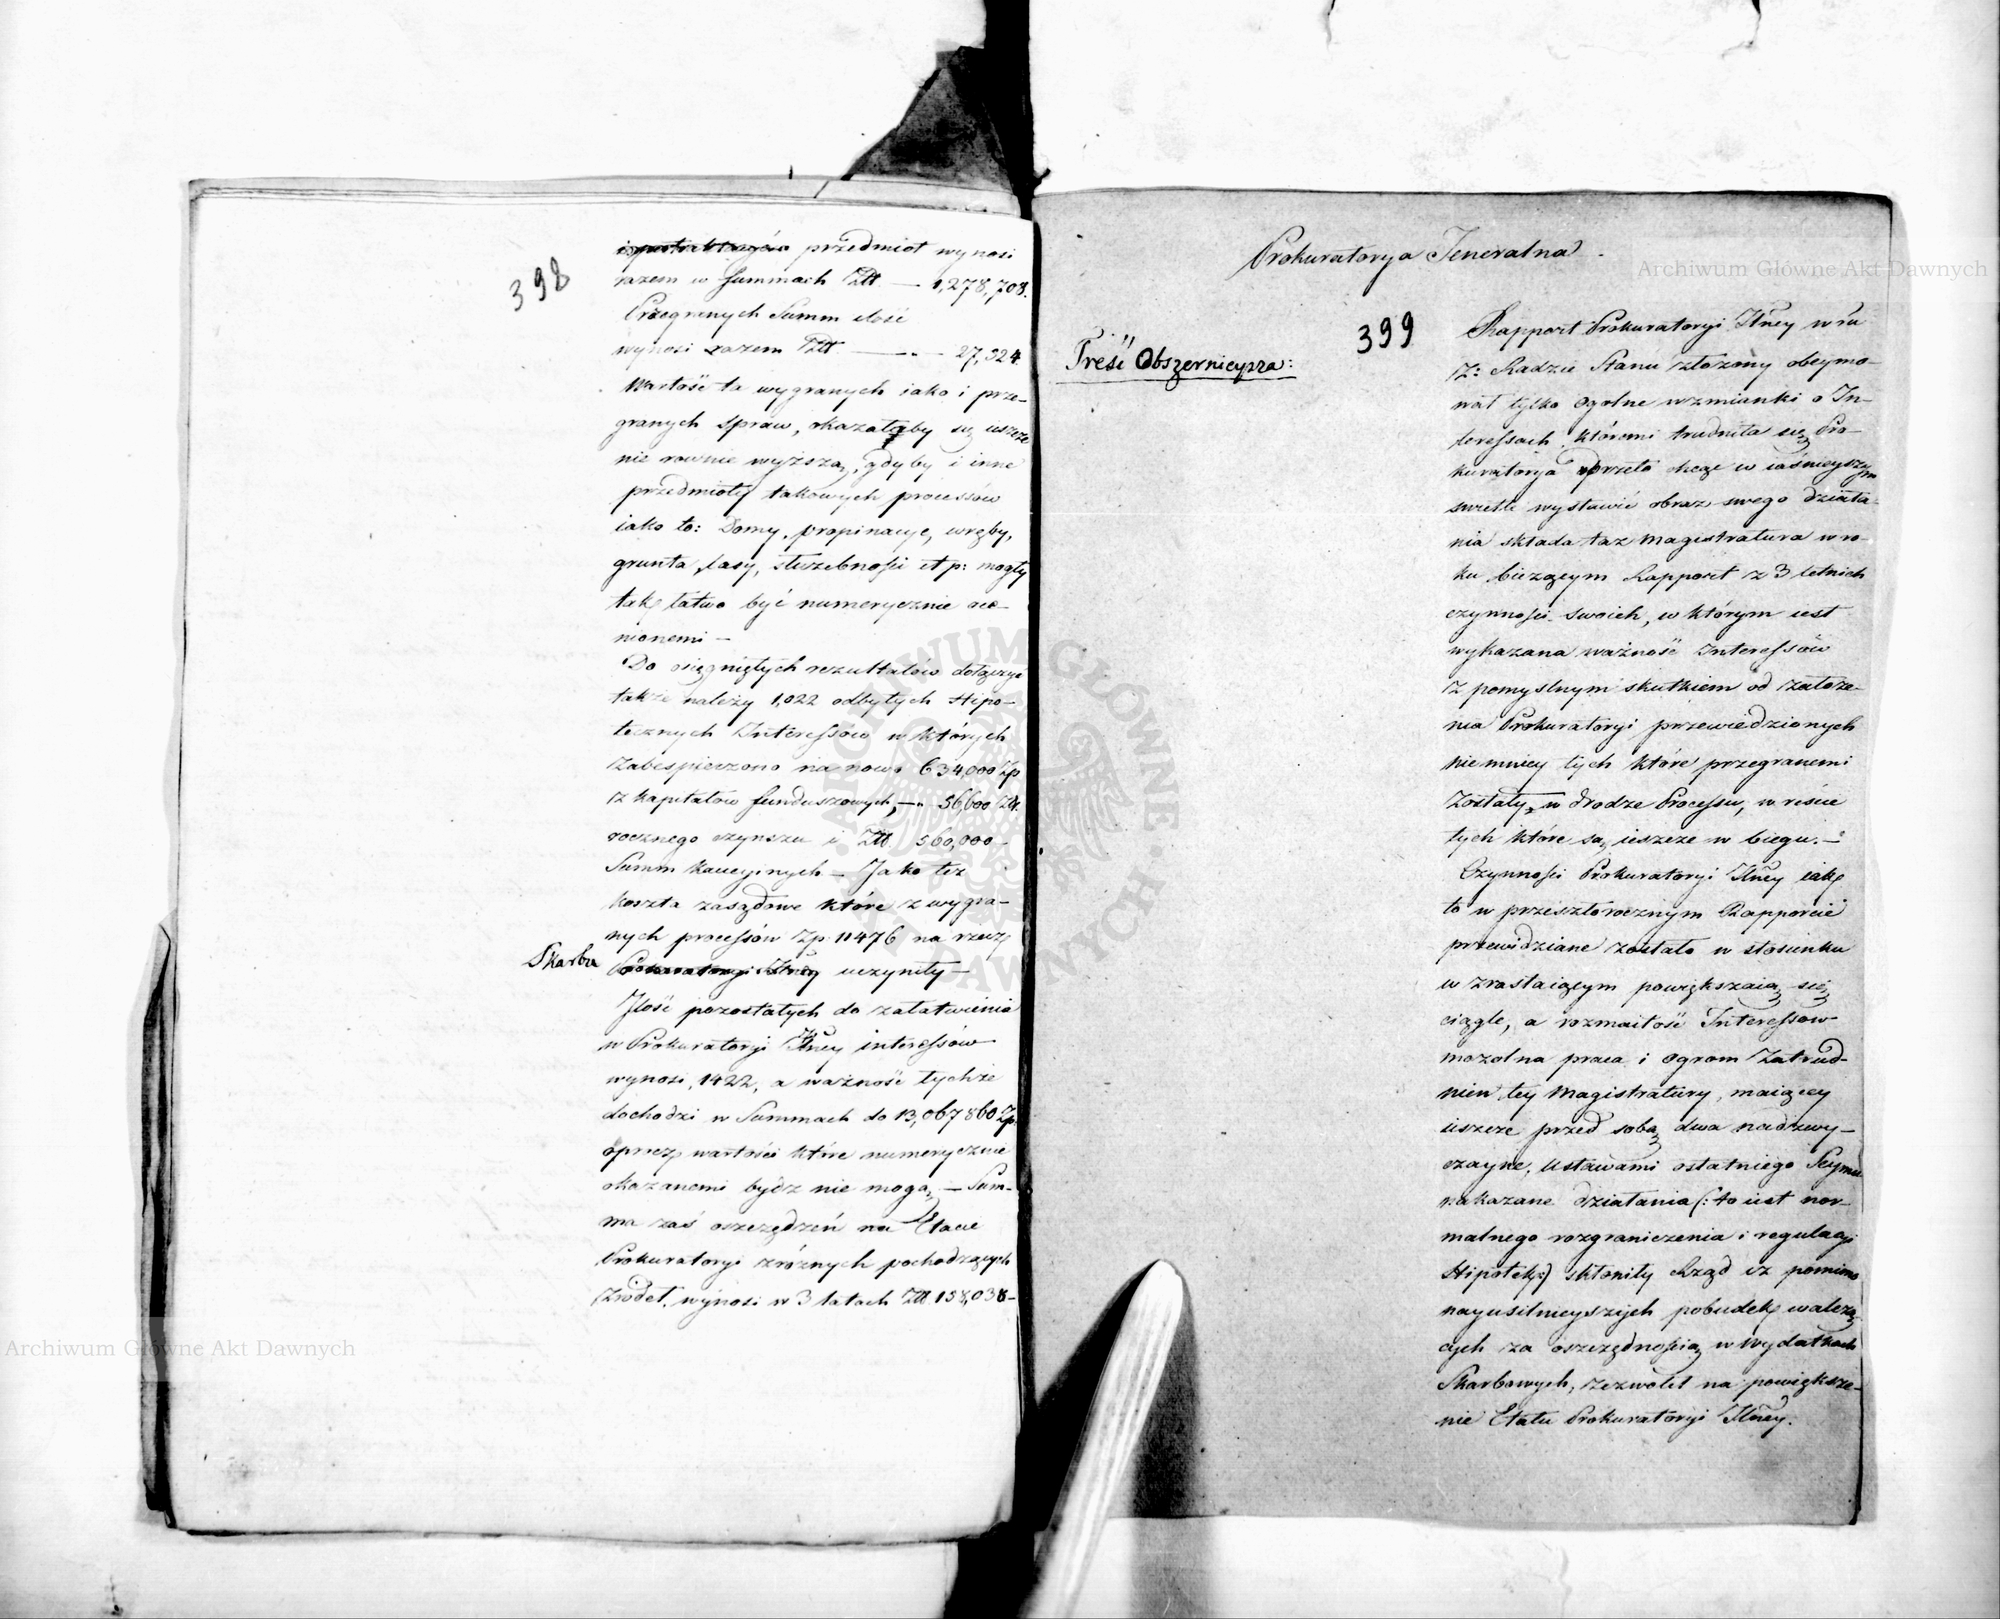 398
przedmiot wynosi
razem w Summach Złł. — 1,278,708.
Przegranych Summ ilość
wynosi razem Złł. — 27,924
Wartość ta wygranych iako i prze-
granych spraw, okazałaby się ieszcze
nie rownie wyższą, gdyby i inne
przedmioty takowych processów
iako to: Domy, propinacye, wręby,
grunta, lasy, służebności et p: mogły
tak łatwo być numerycznie oce-
nionemi —
Do osiągniętych rezultatów dołączyć
także należy 1,022 odbytych Hipo-
tecznych Interessów w których
zabespieczono na nowo 634,000 Zp
z kapitałów funduszowych, — 56,600 Złł.
rocznego czynszu i Złł. 560,000
Summ kaucyinych — Jako też
koszta zasądzone które z wygra-
nych processów Zp. 11476 na rzecz
Skarbu Prokuratoryi uczyniły —
Ilość pozostałych do załatwienia
w Prokuratoryi Jlney interessów
wynosi, 1422, a ważność tychże
dochodzi w Summach do 13,067860 Zp.
oprócz wartości które numerycznie
okazanemi bydź nie mogą — Sum-
ma zaś oszczędzeń na Etacie
Prokuratoryi z różnych pochodzących
źrodeł, wynosi w 3 latach Złł. 138,038—
Prokuratorya Jeneralna.
399
Treść Obszernieysza:
Rapport Prokuratoryi Jlney w ru
z: Radzie Stanu złożony obeymo-
wał tylko ogolne wzmianki o In-
teressach któremi trudniła się Pro-
kuratorya przeto chcąc w iaśnieyszym
swietle wystawić obraz swego działa-
nia składa taż Magistratura w ro-
ku bieżącym Rapport z 3 letnich
czynności swoich, w którym iest
wykazana ważność Interessów
z pomyslnym skutkiem od założe-
nia Prokuratoryi przewiedzionych
niemniey tych które przegranemi
zostały w drodze Processu, w reście
tych które są ieszcze w biegu. —
Czynności Prokuratoryi Jlney iak
to w przeszłorocznym Rapporcie
przewidziane zostało w stosunku
wzrastaiącym powiększaią się
ciągle, a rozmaitość Interessow
mozolna praca i ogrom Zatrud-
nien tey Magistratury, maiącey
ieszcze przed sobą dwa nadzwy-
czayne, Ustawami ostatniego Seymu
nakazane działania (: to iest nor-
malnego rozgraniczenia i regulacyi
Hipotek:) skłoniły Rząd iż pomimo
nayusilnieyszych pobudek walczą-
cych za oszczędnością w Wydatkach
Skarbowych, zezwolił na powiększe-
nie Etatu Prokuratoryi Jlney.
Archiwum Główne Akt Dawnych
Archiwum Główne Akt Dawnych
ARCHIWUM GŁÓWNE AKT DAWNYCH